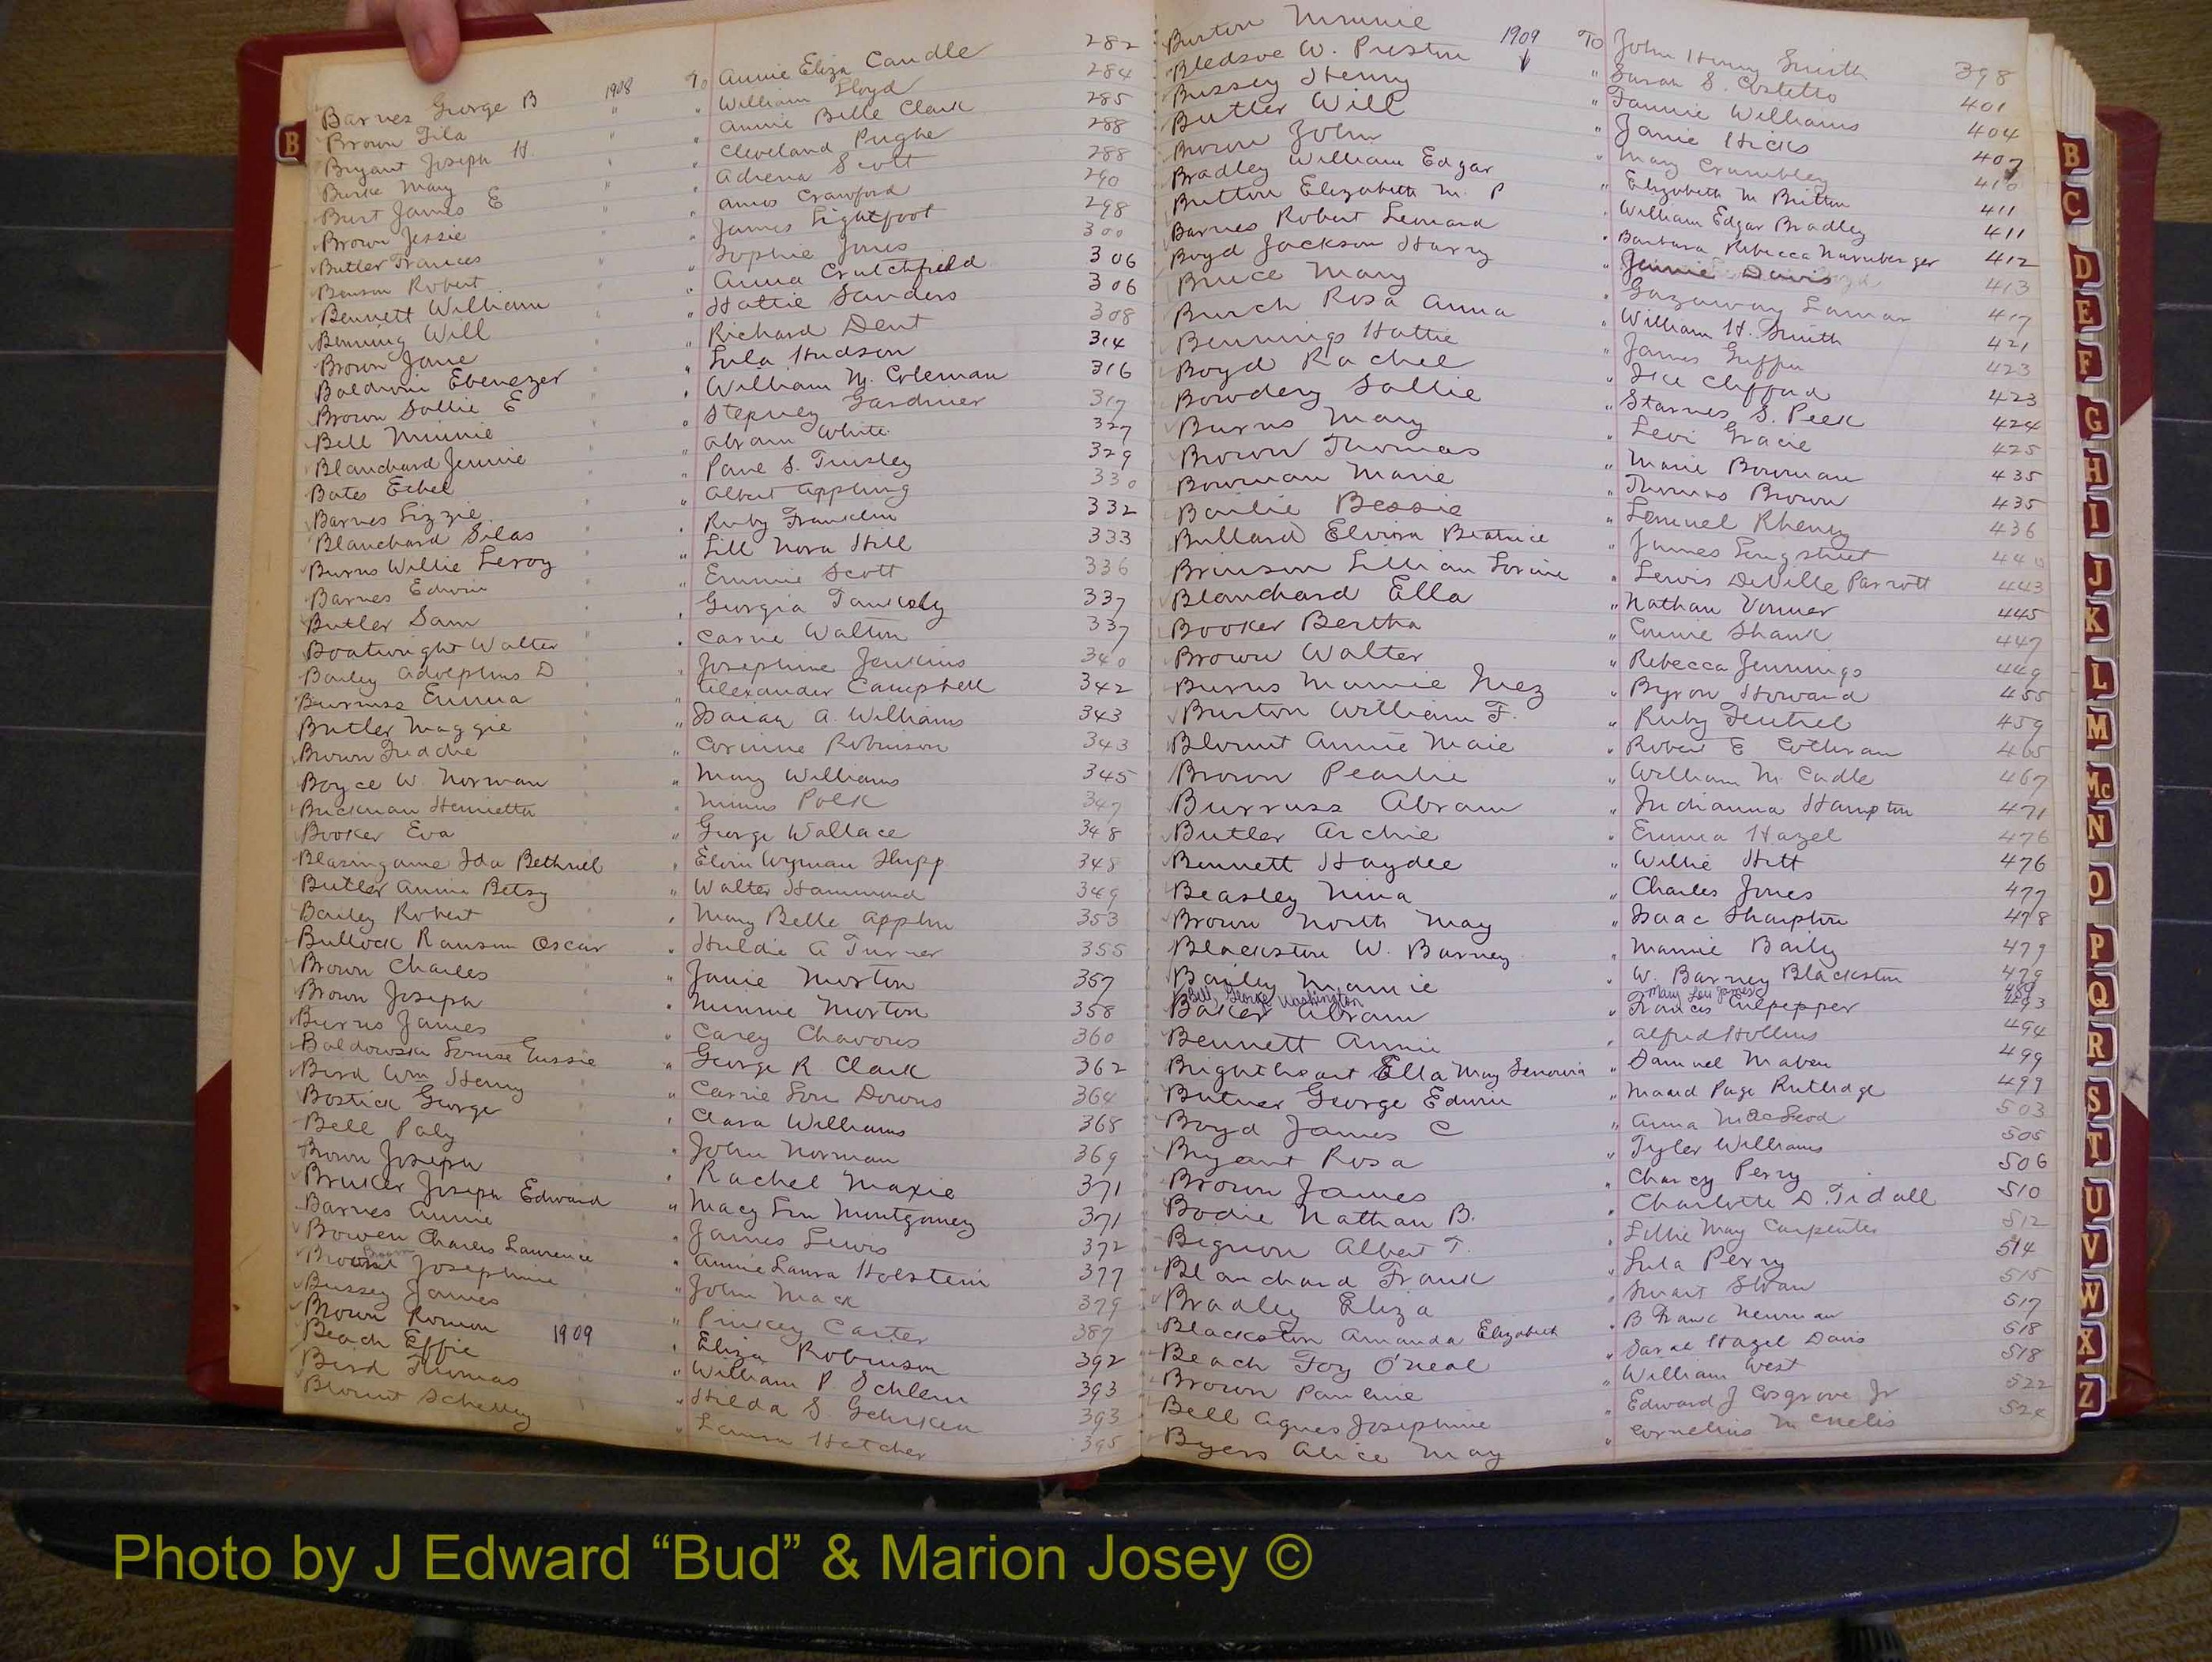 Barnes George B 1908 To Annie Eliza Caudle 282
Brown Lila " " William Lloyd 284
Bryant Joseph H. " " Annie Belle Clark 285
Burke Mary " Cleveland Pughe 288
Burt James E " " Adrena Scott 288
Brown Jessie " Amos Crawford 290
Butler Frances " " James Lightfoot 298
Benson Robert " Sophie Jones 300
Bennett William " Anna Crutchfield 306
Benning Will " Hattie Sanders 306
Brown Jane " Richard Dent 308
Baldwin Ebenezer " Lula Hudson 314
Brown Sallie E " William M. Coleman 316
Bell Minnie " Stepney Gardner 317
Blanchard Jennie " Abram White 327
Bates Ethel " Pone S. Tinsley 329
Barnes Lizzie " Albert Appling 330
Blanchard Silas " Ruby Franklin 332
Burns Willie Leroy " Lill Nora Hill 333
Barnes Edwin " Emmie Scott 336
Butler Sam " Georgia Tanksly 337
Boatwright Walter " Carrie Walton 337
Bailey Adolphus D " Josephine Jenkins 340
Burruss Emma " Alexander Campbell 342
Butler Maggie " Isaiah A. Williams 343
Brown Fuddie " Corinne Robinson 343
Boyce W. Norman " Mary Williams 345
Brickman Henrietta " Minus Polk 347
Booker Eva " George Wallace 348
Blasingame Ida Bethuel " Elvin Wyman Shipp 348
Butler Annie Betsy " Walter Hammond 349
Bailey Robert " Mary Belle Applin 353
Bullock Ransom Oscar " Huldie A Turner 355
Brown Charles " Janie Morton 357
Brown Joseph " Minnie Morton 358
Burns James " Carey Chavous 360
Baldowski Louise Gussie " George R Clark 362
Bird Wm Henry " Carrie Lou Downs 364
Bostick George " Clara Williams 368
Bell Paly " John Norman 369
Brown Joseph " Rachel Maxie 371
Bruker Joseph Edward " Macy Lou Montgomery 371
Barnes Annie " James Lewis 372
Bowen Charles Lawrence " Annie Laura Holstein 377
Brown Josephine " John Mack 379
Bussey James " Pinkey Carter 387
Brown Roman " Eliza Robinson 392
Beach Effie 1909 " William P. Schlein 393
Bird Thomas " Hilda S. Gehrken 393
Blount Schelley " Laura Hatcher 395
Burton Minnie 1909 To John Henry Smith 398
Bledsoe W. Preston " Sarah S. Costello 401
Bussey Henny " Fannie Williams 404
Butler Will " Janie Hicks 407
Brown John " Mary Crumbley 410
Bradley William Edgar " Elizabeth M Britton 411
Britton Elizabeth M. P " William Edgar Bradley 411
Barnes Robert Leonard " Barbara Rebecca Nurnberger 412
Boyd Jackson Harry " Jennie Davis 413
Bruce Mary " Gazaway Lamar 417
Burch Rosa Anna " William H. Smith 421
Bennings Hattie " James Griffin 423
Boyd Rachel " Ike Clifford 423
Bowdery Sallie " Starnes S. Peek 424
Burns Mary " Levi Gracie 425
Brown Thomas " Marie Bowman 435
Bowman Marie " Thomas Brown 435
Bailie Bessie " Lemuel Rheney 436
Bullard Elvira Beatrice " James Longstreet 440
Brinson Lillian Lorine " Lewis DeVille Parrott 443
Blanchard Ella " Nathan Venner 445
Booker Bertha " Connie Shank 447
Brown Walter " Rebecca Jennings 449
Burns Mamie Inez " Byron Howard 455
Burton William F. " Ruby Teutsel 459
Blount Annie Maie " Robert E Cothran 465
Brown Pearlie " William M. Cadle 467
Burruss Abram " Indianna Hampton 471
Butler Archie " Emma Hazel 476
Bennett Haydee " Willie Hitt 476
Beasley Nina " Charles Jones 477
Brown North May " Isaac Sharpton 478
Blackston W. Barney " Mamie Baily 479
Bailey Mamie " W. Barney Blackston 479
Bell, George Washington Mary Lou James 489
Baker Abram " Frances Culpepper 493
Bennett Annie " Alfred Hollins 494
Brightheart Ella May Senovia " Samuel Maben 499
Butner George Edwin " Maud Page Rutledge 499
Boyd James C " Anna MacLeod 503
Bryant Rosa " Tyler Williams 505
Brown James " Charcy Perry 506
Bodie Nathan B. " Charlotte D. Tidall 510
Bignon Albert T. " Lillie May Carpenter 512
Blanchard Frank " Lula Perry 514
Bradley Eliza " Smart Sloan 515
Blackston Amanda Elizabeth " B Frank Newman 517
Beach Foy O'Neal " Sarah Hazel Davis 518
Brown Pauline " William West 518
Bell Agnes Josephine " Edward J Cosgrove Jr 522
Byers Alice May " Cornelius McNelis 524
B
B
C
D
E
F
G
H
I
J
K
L
M
Mc
N
O
P
Q
R
S
T
U
V
W
X
Z
Photo by J Edward “Bud” & Marion Josey ©